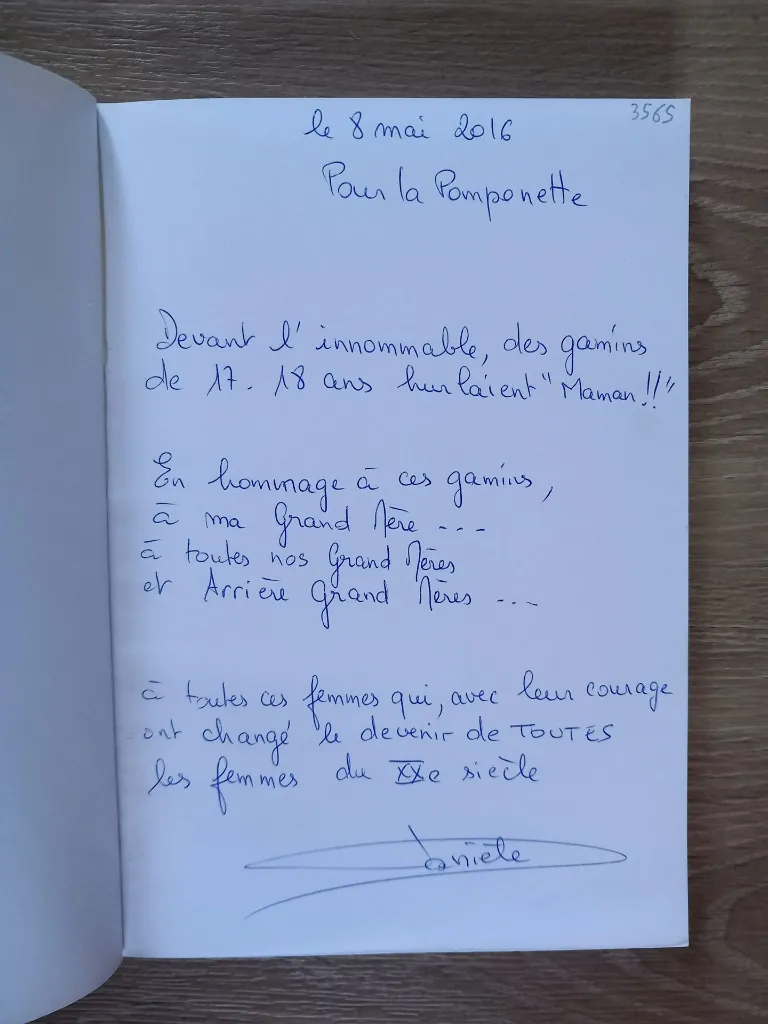 3565
le 8 mai 2016
Pour la Pomponette
Devant l'innommable, des gamins
de 17. 18 ans hurlaient "Maman!!"
En hommage à ces gamins,
à ma Grand Mère ---
à toutes nos Grand Mères
et Arrière Grand Mères ---
à toutes ces femmes qui, avec leur courage
ont changé le devenir de TOUTES
les femmes du XXe siècle
Danièle